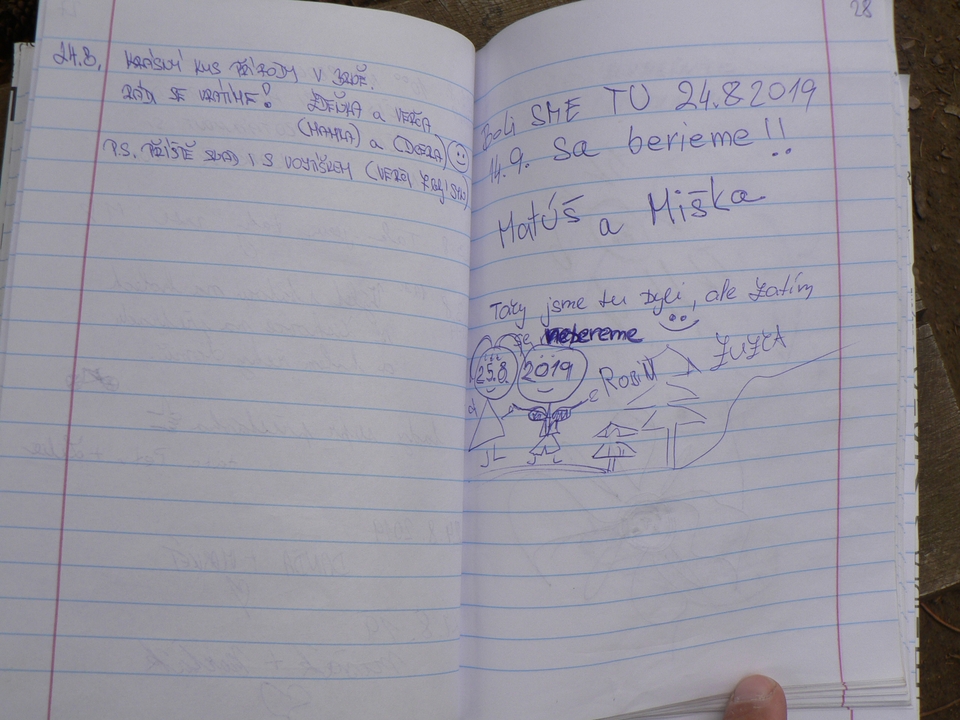 24.8. KRÁSNÝ KUS PŘÍRODY V
RÁDI SE VRÁTÍME! ZDEŇKA a VERČA
(MAMKA) a (DCERA)
P.S. PŘÍŠTĚ SNAD I S VOJTÍŠKEM
28
Boli SME TU 24.8 2019
14.9. Sa berieme!!
Matúš a Miška
Taky jsme tu byli, ale zatím
se nebereme
25.8. 2019 ROBIN A ZUZČA